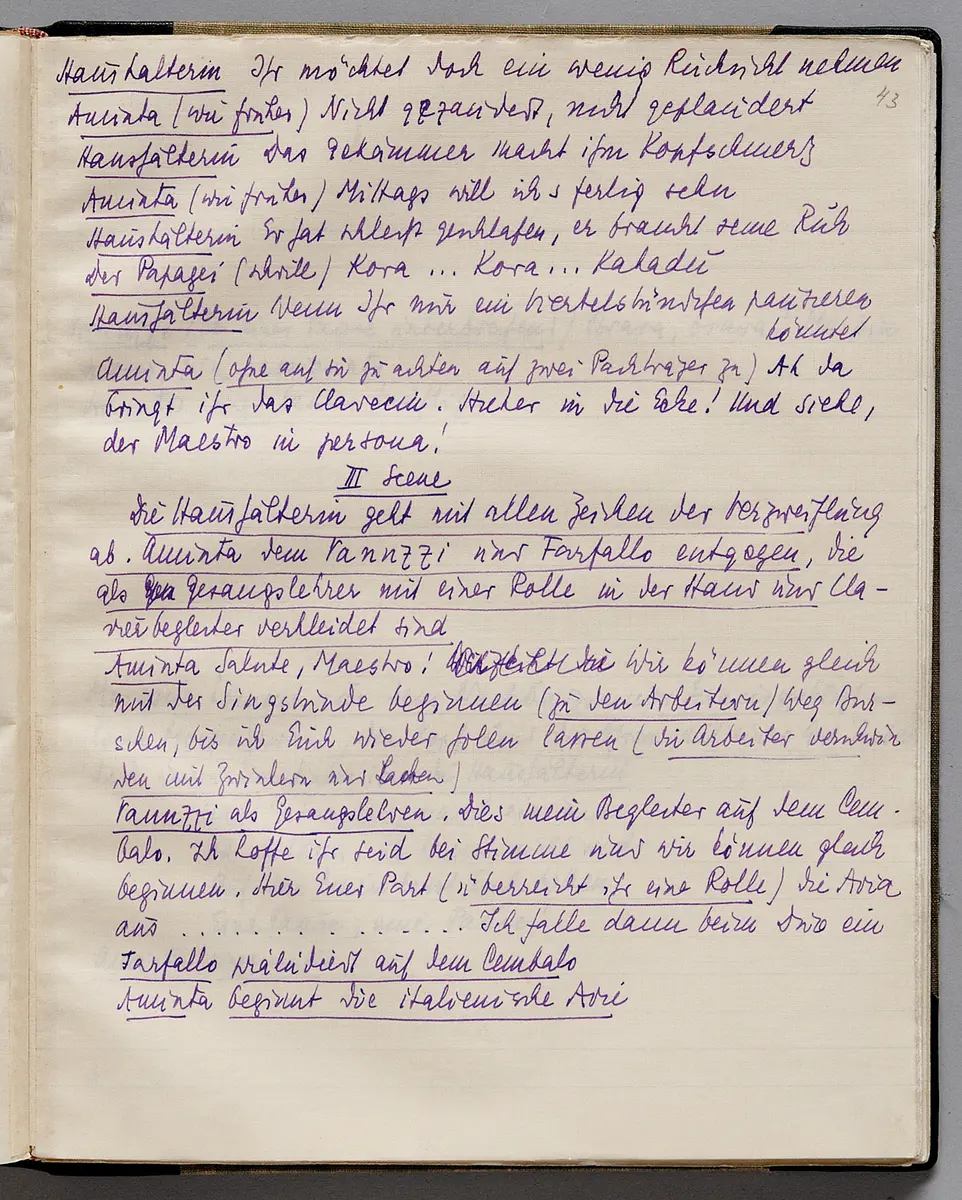 Haushälterin Ihr möchtet doch ein wenig Rücksicht nehmen
43
Aminta (wie früher) Nicht gezaudert, nicht geplaudert
Haushälterin Das Gehämmer macht ihm Kopfschmerz
Aminta (wie früher) Mittags will ich s fertig sehn
Haushälterin Er hat schlecht geschlafen, er braucht seine Ruh
Der Papagei (schrill) Kora ... Kora ... Kakadu
Haushälterin Wenn Ihr nur ein Viertelstündchen pausieren
könntet
Aminta (ohne auf sie zu achten auf zwei Packträger zu) Ah da
bringt ihr das Clavecin. Hieher in die Ecke! Und siehe,
der Maestro in persona!
III Scene
Die Haushälterin geht mit allen Zeichen der Verzweiflung
ab. Aminta dem Vanuzzi und Farfallo entgegen, die
als Gesangslehrer mit einer Rolle in der Hand und Cla-
vierbegleiter verkleidet sind
Aminta Salute, Maestro! Wir können gleich
mit der Singstunde beginnen (zu den Arbeitern) Weg Bur-
schen, bis ich Euch wieder holen lassen (die Arbeiter verschwin
den mit Zwinkern und Lachen)
Vannzzi als Gesangslehrer. Dies mein Begleiter auf dem Cem-
balo. Ich hoffe ihr seid bei Stimme und wir können gleich
beginnen. Hier Euer Part (überreicht ihr eine Rolle) die Aria
aus .................. Ich falle dann beim Duo ein
Farfallo präludiert auf dem Cembalo
Aminta beginnt die italienische Arie